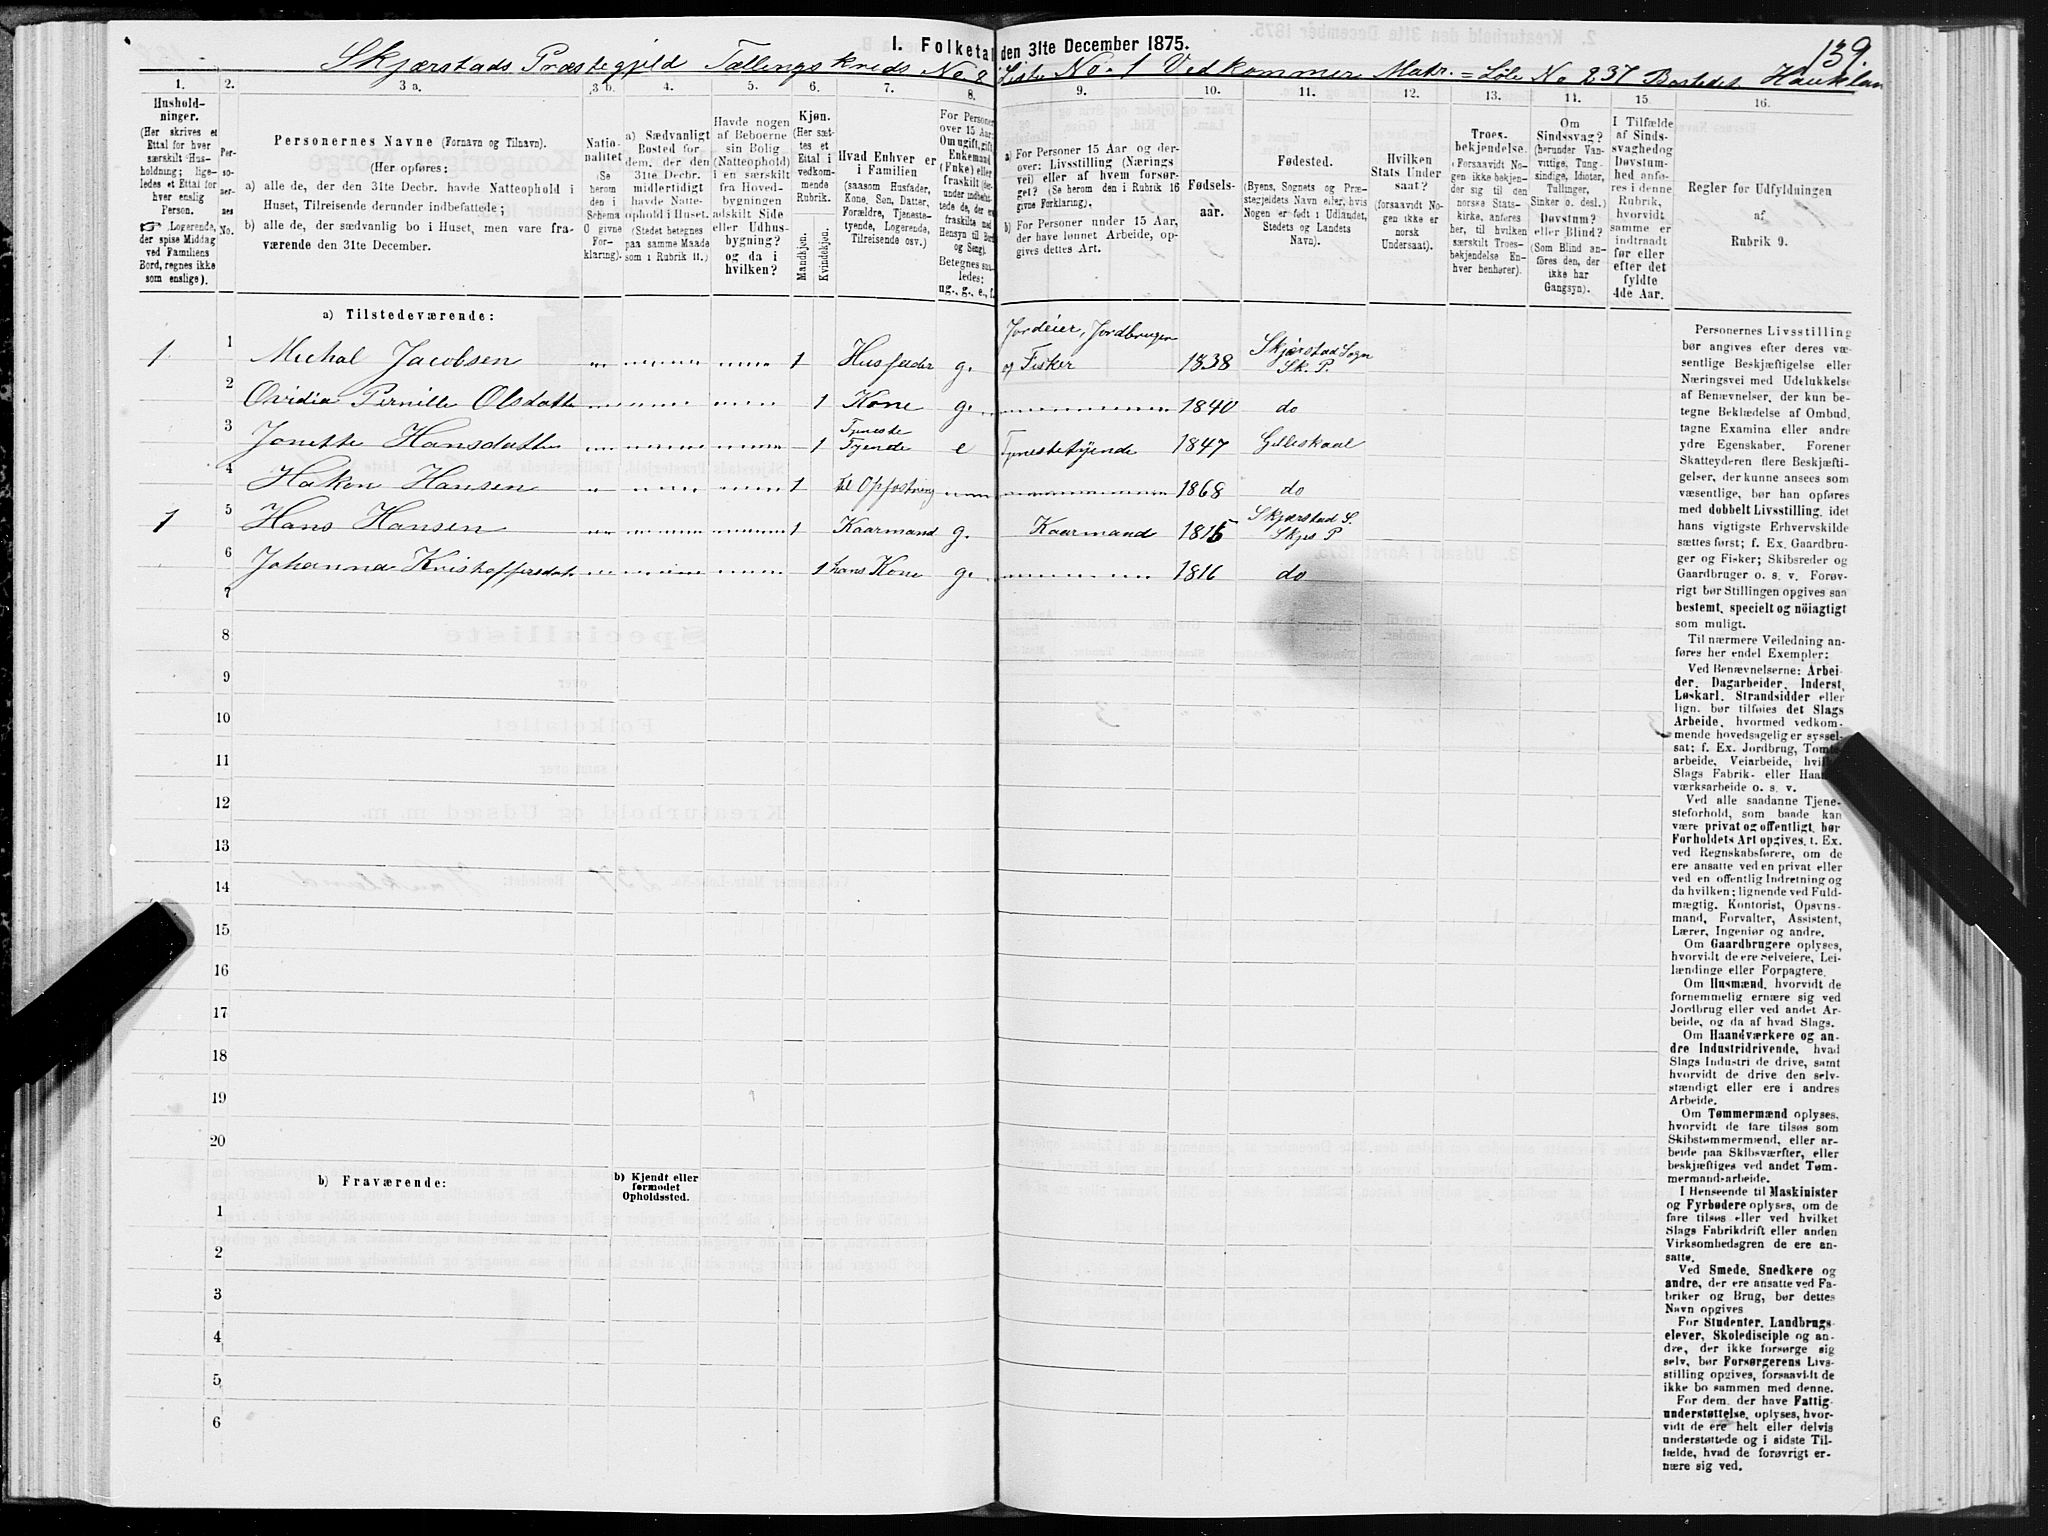 139.
1. Folketal den 31te December 1875.
Skjærstads Præstegjæld Tællingskreds No 8 Liste No. 1 Vedkommer Matr.=Løbe No 237 Bostedet Hauklan
1.
2.
3 a.
3 b.
4.
5.
6.
7.
8.
9.
10.
11.
12.
13.
14.
15.
16.
Hushold-
ninger.
(Her skrives et
Ettal for hver
særskilt Hus-
holdning; lige-
ledes et Ettal for
hver enslig
Person.
☞ Logerende,
der spise Middag
ved Familiens
Bord, regnes ikke
som enslige).
Per-
so-
ner-
nes
No.
Personernes Navne (Fornavn og Tilnavn).
(Her opføres:
a) alle de, der den 31te Decbr. havde Natteophold i
Huset, Tilreisende derunder indbefattede;
b) alle de, der sædvanlig bo i Huset, men vare fra-
værende den 31te December.
Natio-
nalitet
(Se
herom
den i
Schema
O givne
For-
klaring).
a) Sædvanligt
Bosted for
dem, der den
31te Decbr.
midlertidigt
havde Natte-
ophold i Huset.
(Stedet betegnes
paa samme Maade
som i Rubrik 11.)
Havde nogen
af Beboerne
sin Bolig
(Natteophold)
i en særskilt
fra Hoved-
bygningen
adskilt Side
eller Udhus-
bygning?
og da i
hvilken?
Kjøn.
(Her sæt-
tes et
Ettal i
vedkom-
mende
Rubrik.
Mandkjøn.
Kvindekjøn.
Hvad Enhver er
i Familien
(saasom Husfader,
Kone, Søn, Datter,
Forældre, Tjeneste-
tyende, Logerende,
Tilreisende osv.)
For Personer
over 15 Aar:
Om ugift, gift,
Enkemand
(Enke) eller
fraskilt
Betegnes saa-
ledes:
ug., g., e., f.
a) For Personer 15 Aar og der-
over: Livsstilling (Nærings
vei) eller af hvem forsør-
get? (Se herom den i Rubrik 16
givne Forklaring).
b) For Personer under 15 Aar,
der have lønnet Arbeide, op-
gives dettes Art.
Fødsels-
aar.
Fødested.
(Byens, Sognets og Præ-
stegjeldets Navn eller, hvis
Nogen er født i Udlandet,
Stedets og Landets
Navn).
Hvilken
Stats Under
saat?
(forsaavidt No-
gen ikke er
norsk
Undersaat).
Troes-
bekjendelse.
(Forsaavidt No-
gen ikke bekjen-
der sig til den
norske Stats-
kirke, anføres
her, til hvilken
særskilt Troes-
bekjendelse En-
hver henhører).
Om
Sindssvag?
(herunder Van-
vittige, Tung-
sindige, Idioter,
Tullinger,
Sinker o. desl.)
Døvstum?
eller Blind?
(Som Blind an-
føres den, der
ikke har
Gangsyn).
I Tilfælde
af Sinds-
svaghed og
Døvstum-
hed anfø-
res i denne
Rubrik,
hvorvidt
samme er
indtraadt
før eller
efter det
fyldte
4de Aar.
Regler for Udfyldningen
af
Rubrik 9.
a) Tilstedeværende:
1 1 Michal Jacobsen 1 Husfader g. Jordeier, Jordbruger og Fisker 1838 Skjærstad Sogn Sk. P.
2 Ovidia Pernille Olsdatte 1 Kone g. 1840 do
3 Jonette Hansdatte 1 Tjeneste Tyende e Tjenestetyende 1847 Gilleskaal
4 Hakon Hansen 1 til Opfostring 1868 do
1 5 Hans Hansen 1 Kaarmand g. Kaarmand 1815 Skjærstad S. Skjs P
6 Johanna Kristoffersdat 1 hans Kone g. 1816 do
7
8
9
10
11
12
13
14
15
16
17
18
19
20
b) Fraværende:
b) Kjendt eller
formodet
Opholdssted.
1
2
3
4
5
6
Personernes Livsstilling
bør angives efter deres væ-
sentlige Beskjæftigelse eller
Næringsvei med Udelukkelse
af Benævnelser, der kun be-
tegne Beklædelse af Ombud,
tagne Examina eller andre
ydre Egenskaber. Forener
Skatteyderen flere Beskjæfti-
gelser, der kunne ansees som
væsentlige, bør han opføres
med dobbelt Livsstilling, idet
hans vigtigste Erhvervskilde
sættes først; f. Ex. Gaardbru-
ger og Fisker; Skibsreder og
Gaardbruger o. s. v. Forøv-
rigt bør Stillingen opgives saa
bestemt, specielt og nöiagtigt
som muligt.
Til nærmere Veiledning an-
føres her endel Exempler:
Ved Benævnelserne: Arbei-
der, Dagarbeider, Inderst,
Løskarl, Strandsidder eller
lign. bør tilføies det Slags
Arbeide, hvormed vedkom-
mende hovedsagelig er syssel-
sat; f. Ex. Jordbrug, Tomte-
arbeide, Veiarbeide,
Slags Fabrik- eller
værksarbeide o. s. v.
Ved alle saadanne Tjene-
steforhold, som baade kan
være privat og offentligt, bør
Forholdets Art opgives, t. Ex.
ved Regnskabsførere, om de
ere ansatte ved en privat eller
ved en offentlig Indretning og
da hvilken; lignende ved Fuld-
mægtig, Kontorist, Opsyns-
mand, Forvalter, Assistent,
Lærer, Ingeniør og andre.
Om Gaardbrugere oplyses,
hvorvidt de ere Selveiere, Lei-
lændinge eller Forpagtere.
Om Husmænd, hvorvidt de
fornemmelig ernære sig ved
Jordbrug eller ved andet Ar-
beide, og da af hvad Slags.
Om Haandværkere og an-
dre Industridrivende, hvad
Slags Industri de drive, samt
hvorvidt de drive den selv-
stændigt eller ere i andres
Arbeide.
Om Tømmermænd oplyses,
hvorvidt de fare tilsøs som
Skibstømmermænd, eller ar-
beide paa Skibsværfter, eller
beskjæftiges ved andet Tøm-
mermand-arbeide.
I Henseende til Maskinister
og Fyrbødere oplyses, om de
fare tilsøs eller ved hvilket
Slags Fabrikdrift eller anden
Virksomhedsgren de ere an-
satte.
Ved Smede, Snedkere og
andre, der ere ansatte ved Fa-
briker og Brug, bør dettes
Navn opgives
For Studenter, Landbrugs-
elever, Skoledisciple og an-
dre, der ikke forsørge sig
selv, bør Forsørgerens Livs-
stilling opgives, forsaavidt de
ikke bo sammen med denne.
For dem, der have Fattig-
understøttelse, oplyses, hvor-
vidt de ere helt eller delvis
understøttede og i sidste Til-
fælde, hvad de forøvrigt er-
nære sig ved.